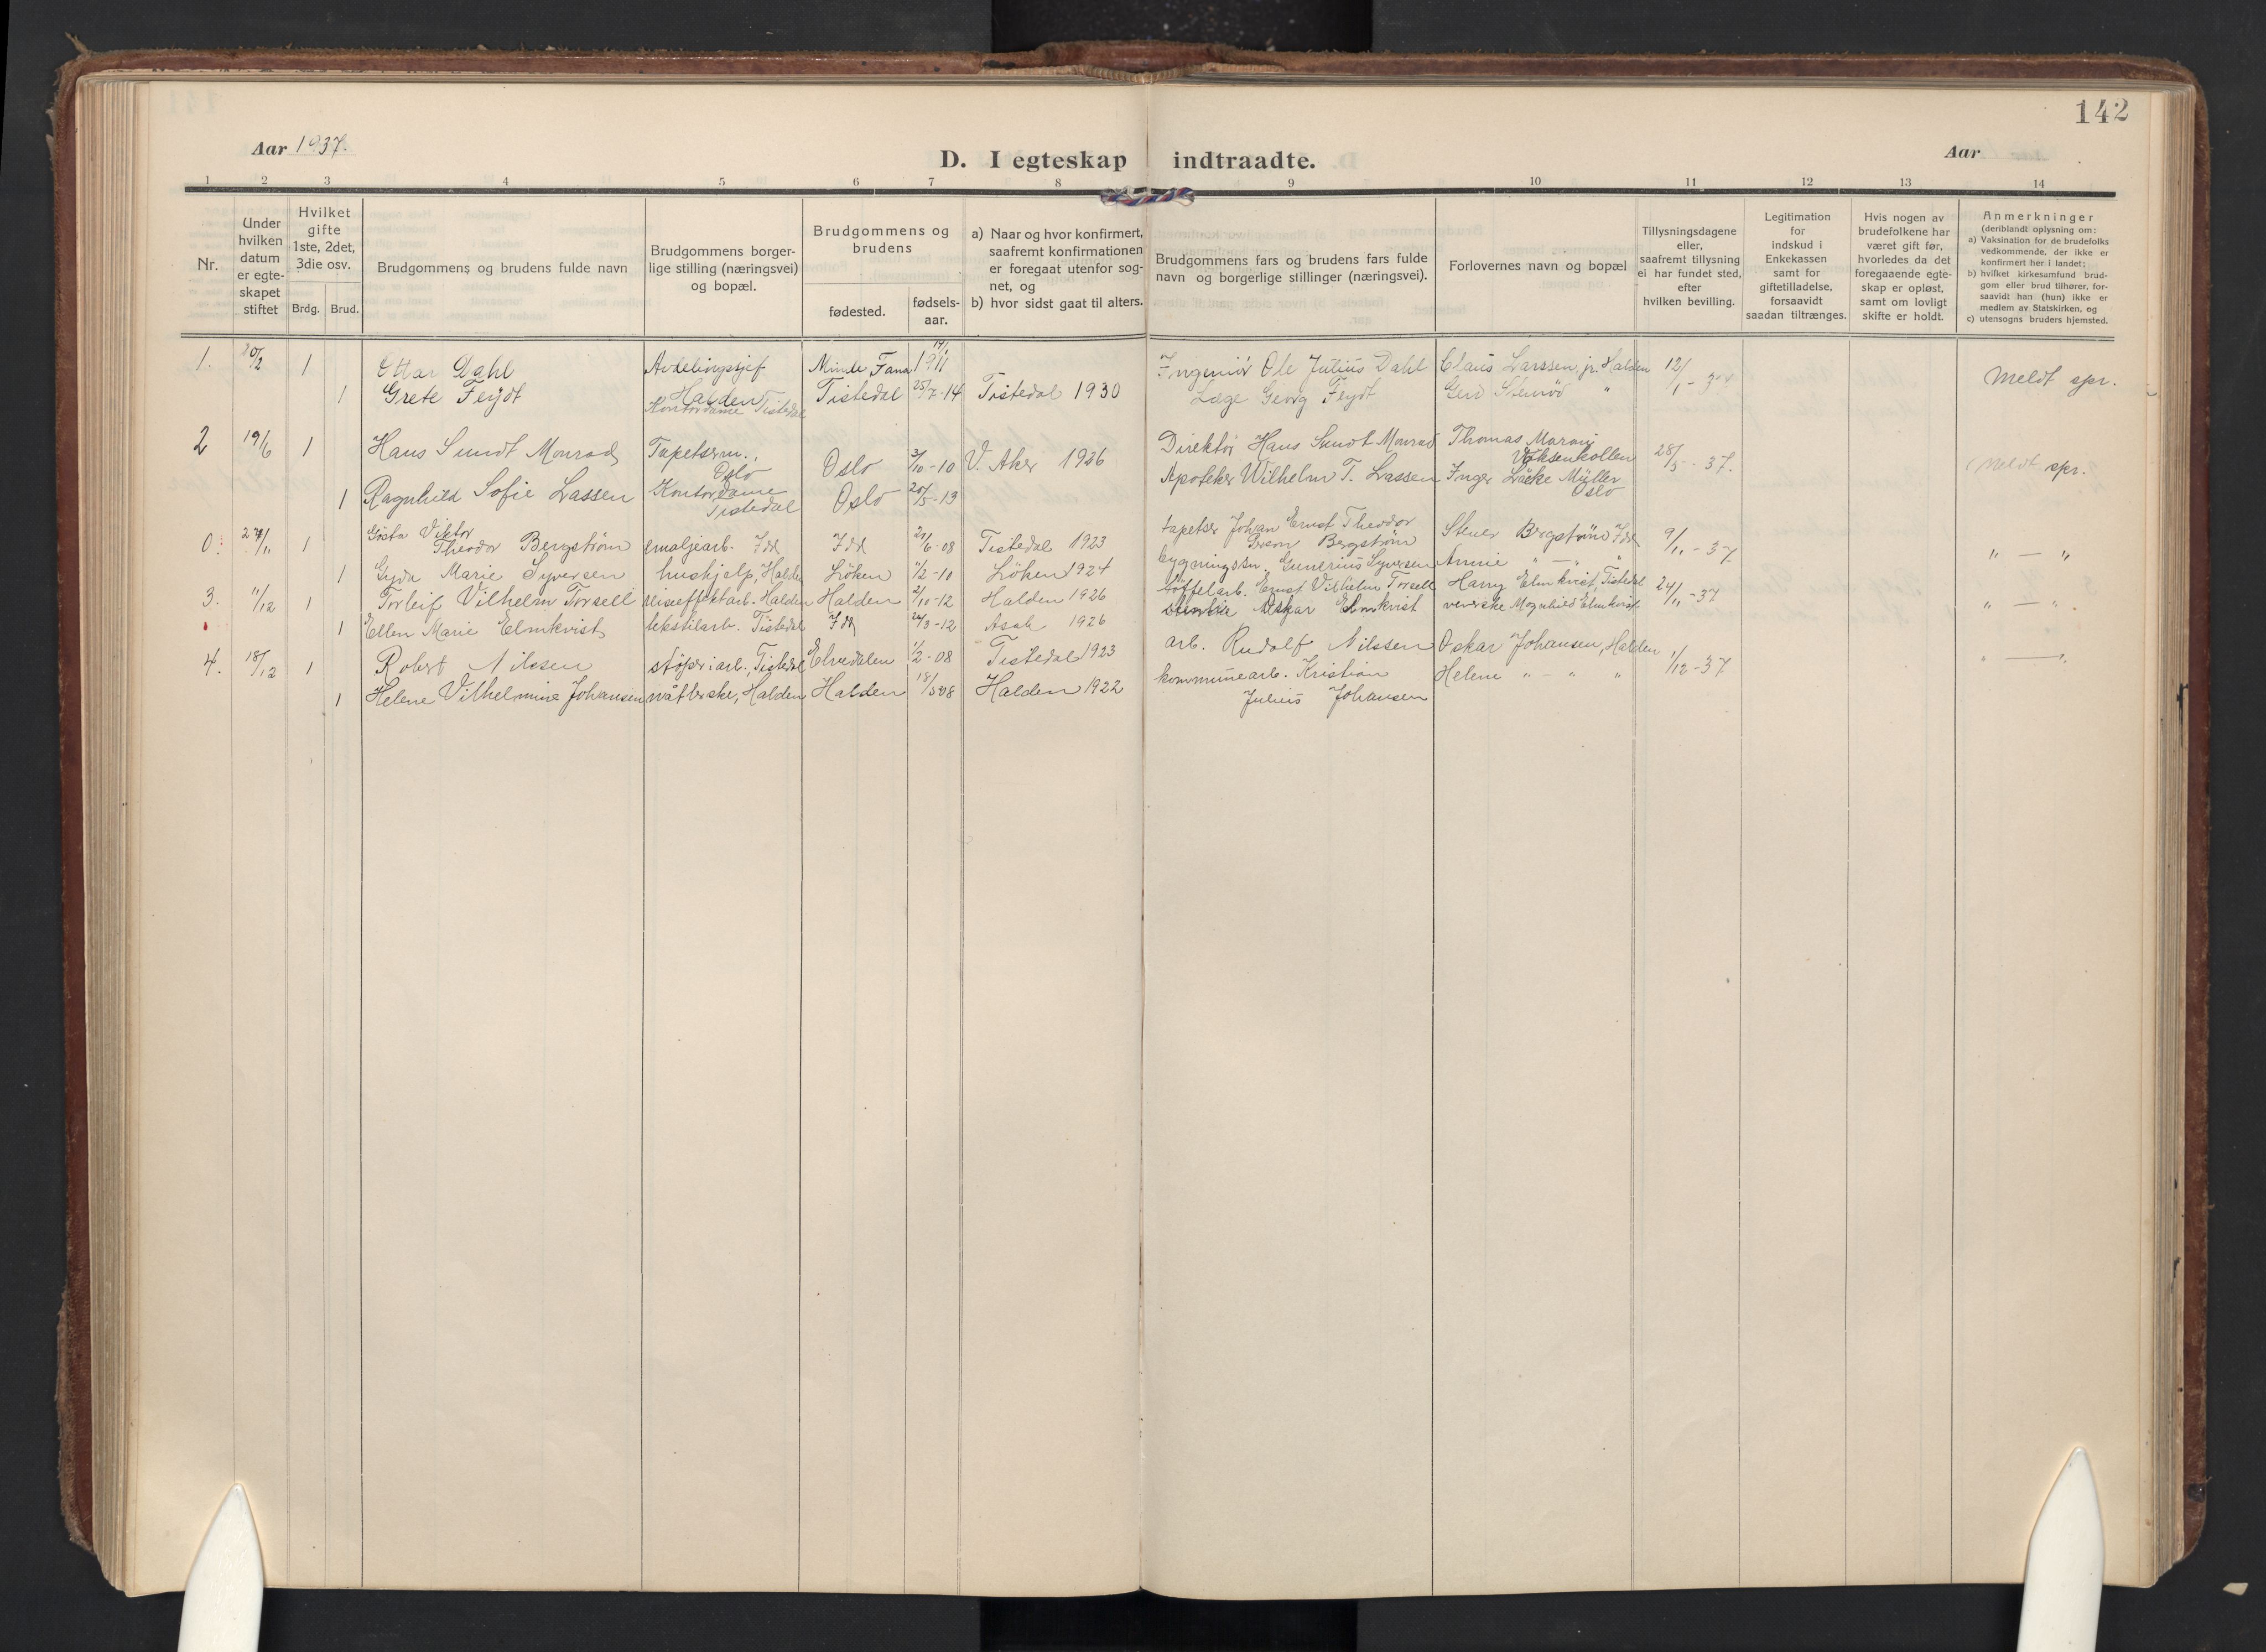 142
Aar 1937.
D. I egteskap indtraadte.
Aar
1 2 3 4 5 6 7 8 9 10 11 12 13 14
Nr.
Under
hvilken
datum
er egte-
skapet
stiftet
Hvilket
gifte
1ste, 2det,
3die osv.
Brdg. Brud.
Brudgommens og brudens fulde navn
Brudgommens borger-
lige stilling (næringsvei)
og bopæl.
Brudgommens og
brudens
fødested.
fødsels-
aar.
a) Naar og hvor konfirmert,
saafremt konfirmationen
er foregaat utenfor sog-
net, og
b) hvor sidst gaat til alters.
Brudgommens fars og brudens fars fulde
navn og borgerlige stillinger (næringsvei).
Forlovernes navn og bopæl
Tillysningsdagene
eller,
saafremt tillysning
ei har fundet sted,
efter
hvilken bevilling.
Legitimation
for
indskud i
Enkekassen
samt for
giftetilladelse,
forsaavidt
saadan tiltrænges.
Hvis nogen av
brudefolkene har
været gift før,
hvorledes da det
foregaaende egte-
skap er opløst,
samt om lovligt
skifte er holdt.
Anmerkninger
(deriblandt oplysning om:
a) Vaksination for de brudefolks
vedkommende, der ikke er
konfirmert her i landet;
b) hvilket kirkesamfund brud-
gom eller brud tilhører, for-
saavidt han (hun) ikke er
medlem av Statskirken, og
c) utensogns bruders hjemsted.
1. 20/2 1 Ottar Dahl Avdelingssjef Minde Fana 14/1 1911 Ingeniör Ole Julius Dahl Claus Larssen jr. Halden 12/1 - 37 Meldt spr.
Halden
1 Grete Feydt Kontordame Tistedal Tistedal 25/7-14 Tistedal 1930 Læge Georg Feydt Gerd "
2 19/6 1 Hans Sundt Monrad Tapetserm., Oslo 3/10-10 V. Aker 1926 Direktör Hans Sundt Monrad Thomas 28/5 - 37. Meldt spr.
Oslo Voksenkollen
1 Ragnhild Sofie Lassen Kontordame Oslo 20/5-13 Apoteker Wilhelm T. Lassen Inger Müller
Tistedal Oslo
0. 27/11 1 Gösta Viktor tapetser Johan Ernst Theodor
Theodor Bergström emaljearb. Idd Idd 21/6-08 Tistedal 1923 Bergström Bergström Idd 9/11-37 " — "
1 Gyda Marie Syversen hushjelp, Halden Löken 11/2-10 Löken 1924 bygningssn. Gunerius Syversen Annie " — "
3. 11/12 1 Torleif Vilhelm Torsell reiseeffektarb. Halden Halden 2/10-12 Halden 1926 töffelarb. Ernst Vilhelm Torsell Harry Elmkvist, Tistedal 24/11-37 " — "
1 Ellen Marie Elmkvist tekstilarb. Tistedal Idd 24/3-12 Asak 1926 Oskar Elmkvist veverske Magnhild Elmkvist
4. 18/12 1 Robert Nilssen stöperiarb., Tistedal Elvedalen 1/2-08 Tistedal 1923 arb. Rudolf Nilssen Oskar Johansen, Halden 1/12-37 " — "
1 Helene Vilhelmine Johansen nåtlerske, Halden Halden 18/5-08 Halden 1922 kommunearb. Kristian Helene " - " "
Julius Johansen